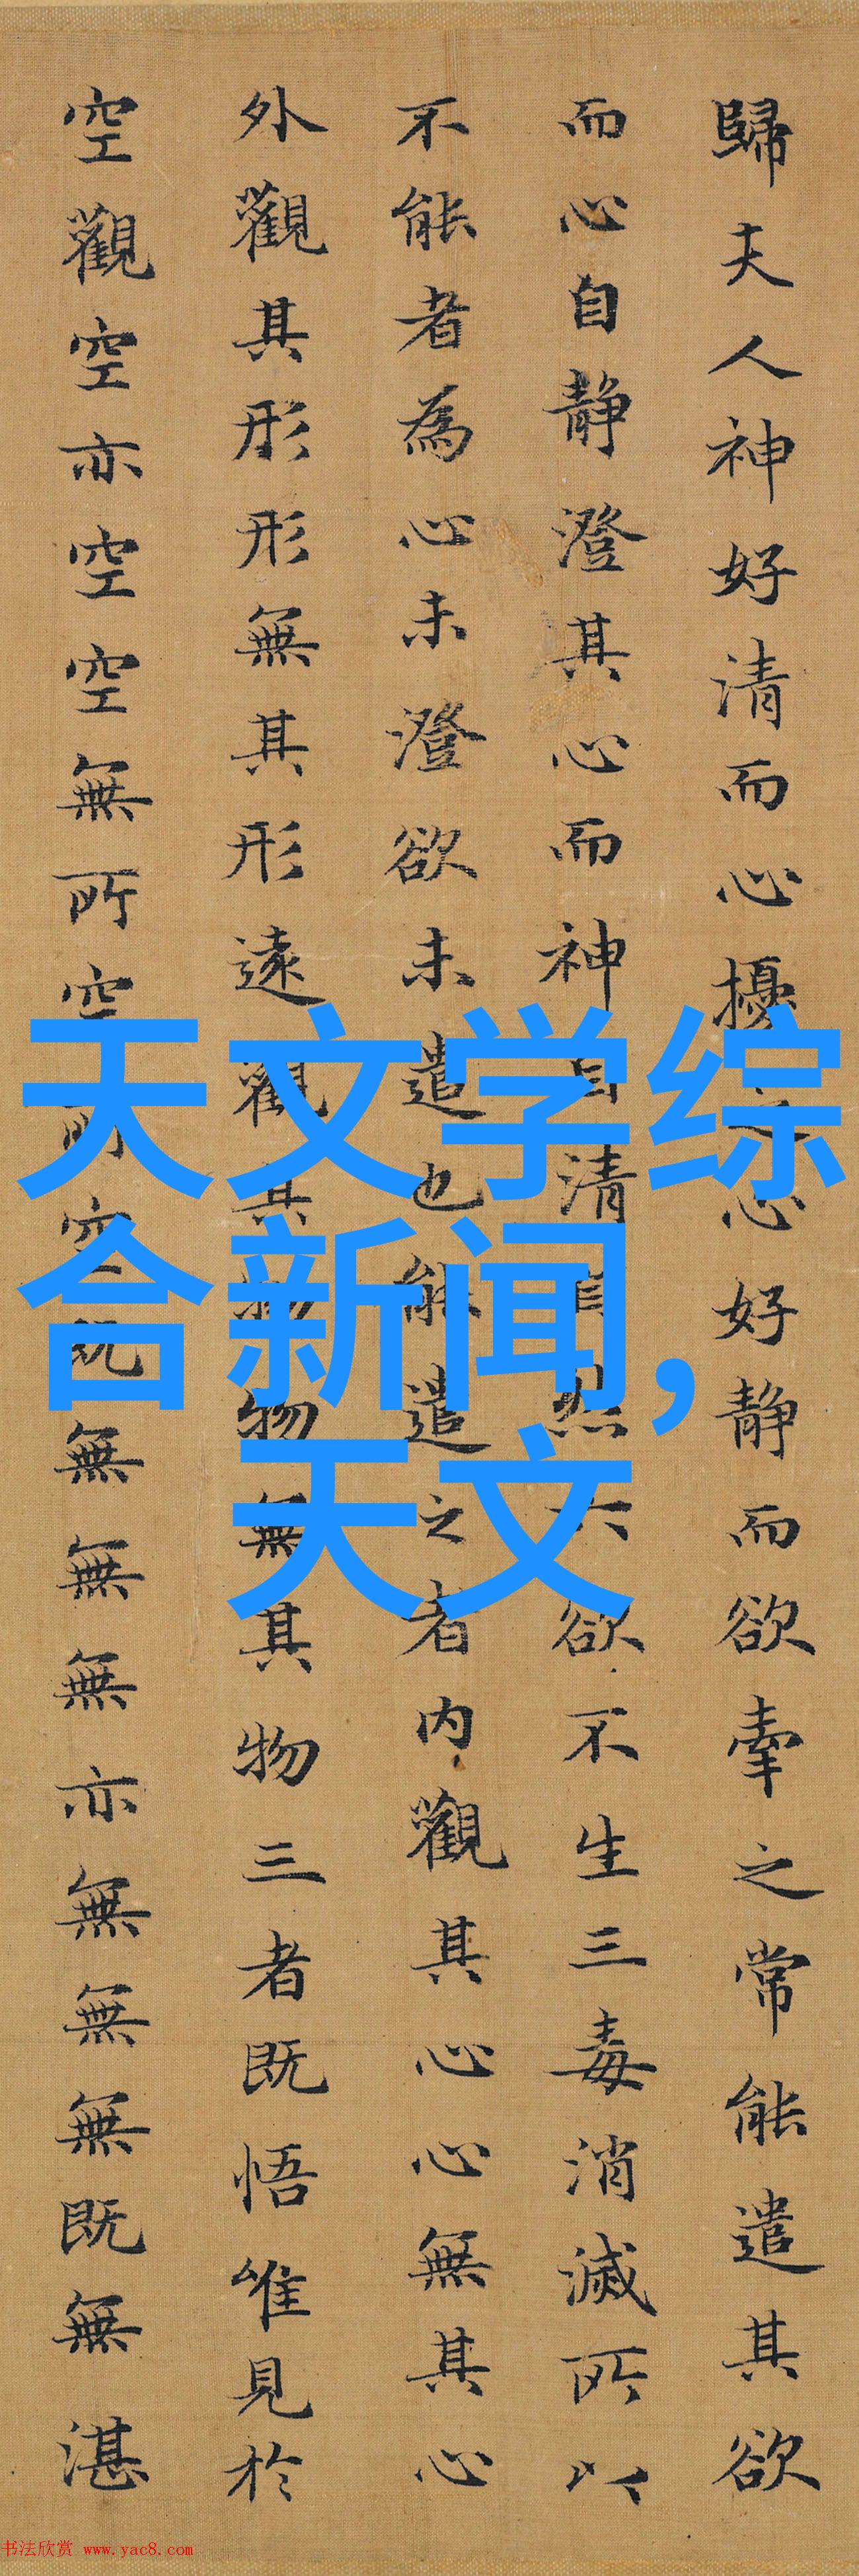 歸夫人神好清而心擾之心好靜而欲牽之常能遣其欲
而心自靜澄其心而神自清自然六欲不生三毒消滅所以
不能者為心未澄欲未遣也能遣之者内觀其心心無其心
外觀其形形無其形遠觀其物物無其物三者既悟唯見於
空觀空亦空空無所空所空既無無無亦無無無既無湛
天文学综
合新闻,
天文
书法欣赏 www.yac8.com